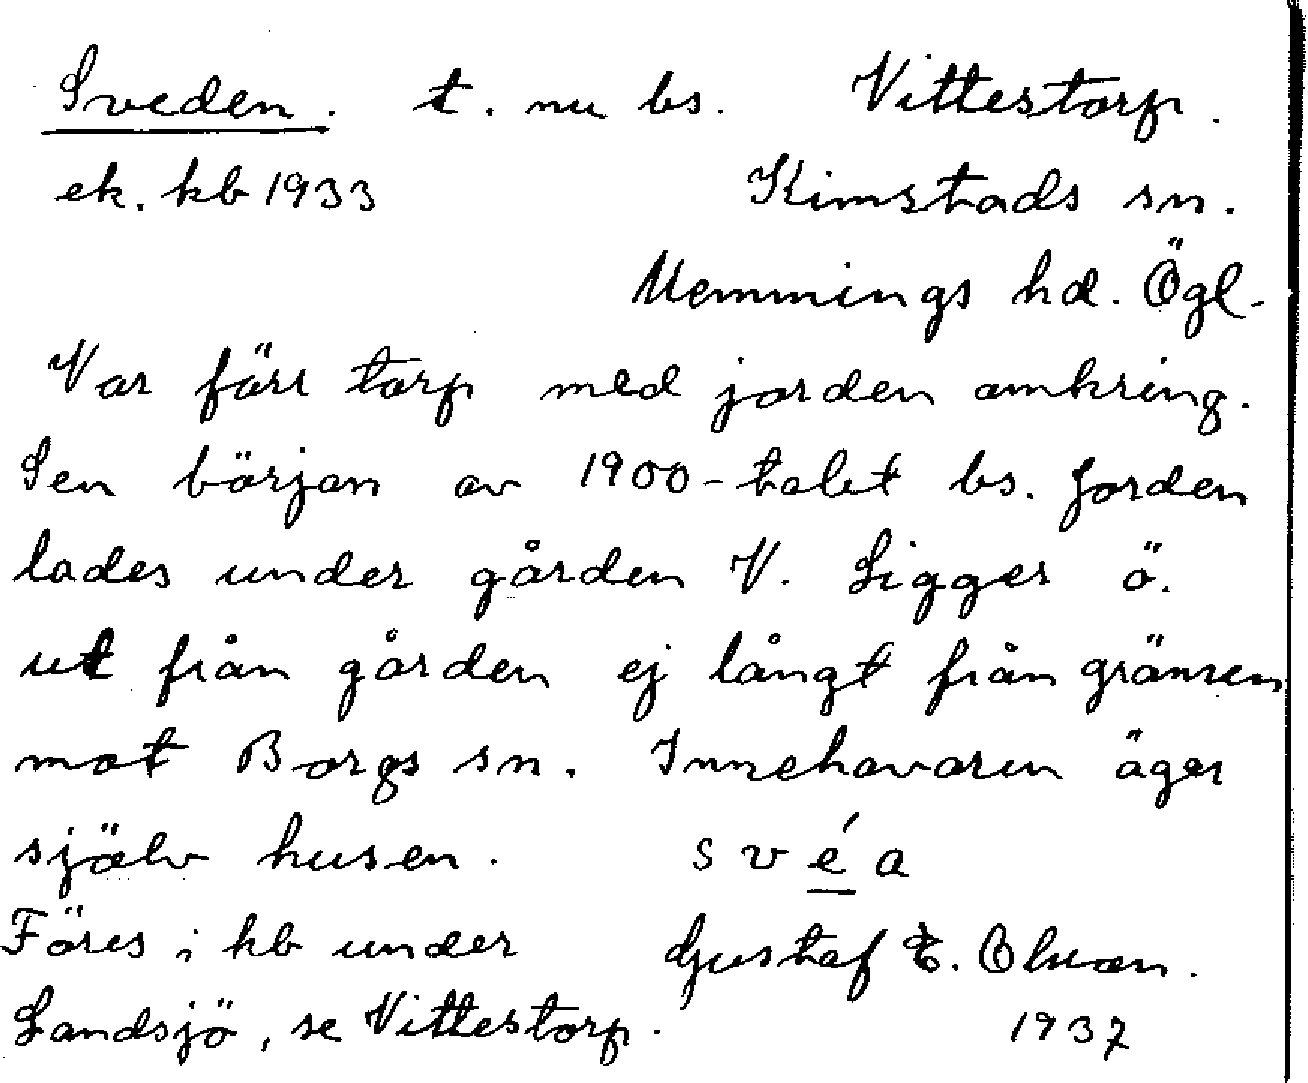 Sveden. t. nu bs. Vittestorp.
ek. kb 1933 Kimstads sn.
Memmings hd. Ögl.
Var förr torp med jorden omkring.
Sen början av 1900-talet bs. Jorden
lades under gården V. Ligger ö.
ut från gården ej långt från gränsen
mot Borgs sn. Innehavaren äger
själv husen. svéa
Föres i kb under Gustaf E. Olsson.
Landsjö, se Vittestorp. 1937